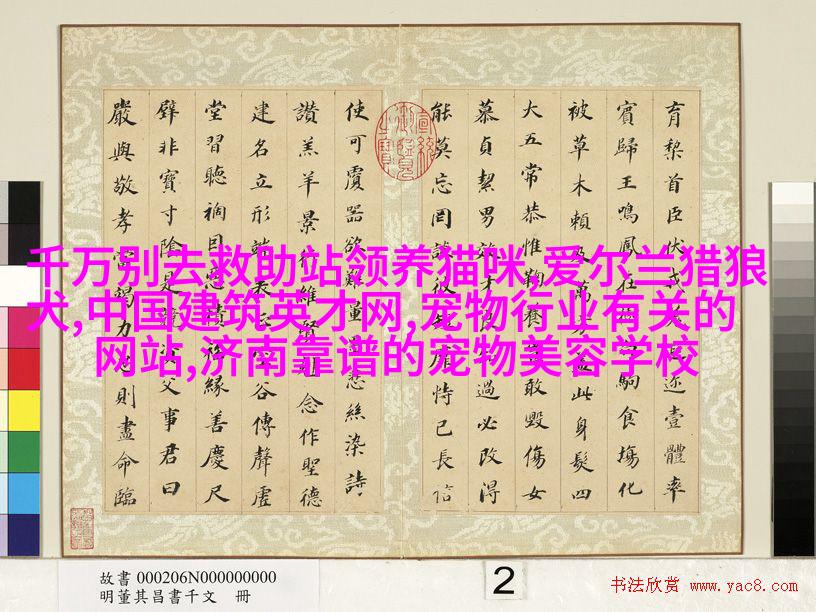 育黎首臣伏戎羌迩壹體率
賓歸王鳴鳳在駒食場化
被草木賴及萬方此身髮四
大五常恭惟鞠養敢毀傷女
慕貞絜男效才過必改得
能莫忘罔談彼靡恃己長信
使可覆器欲難量悲絲染詩
讚羔羊景行維賢念作聖德
建名立形端表正谷傳聲虛
堂習聽禍因惡積緣善慶尺
璧非寶寸陰是父事君曰
嚴與敬孝當竭力則盡命臨
千万别去救助站领养猫咪,爱尔兰猎狼
犬,中国建筑英才网,宠物行业有关的
网站,济南靠谱的宠物美容学校
故書 000206N000000000
明董其昌書千文 冊
2
书法欣赏 www.yac8.com